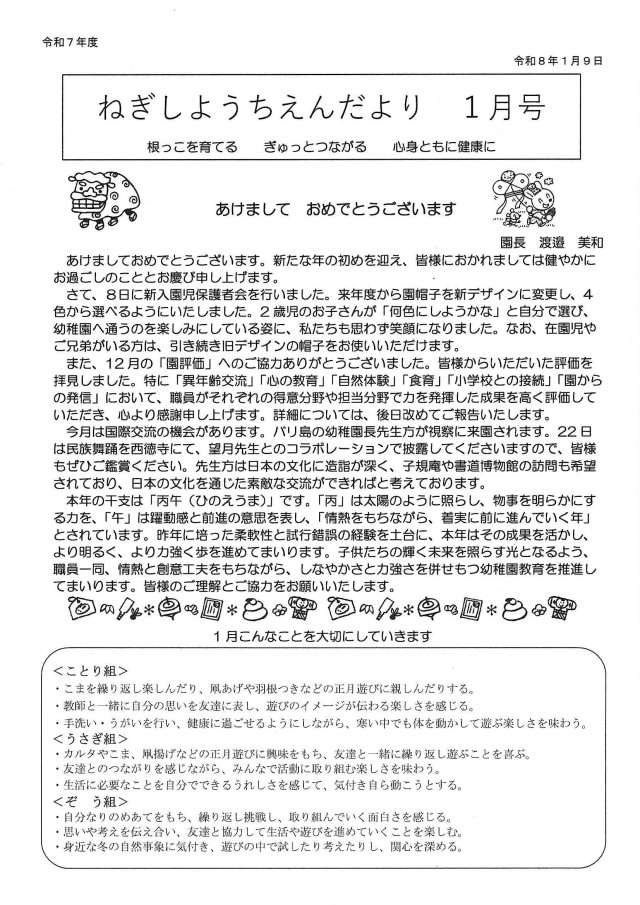 令和７年度
令和８年１月９日
ねぎしようちえんだより　１月号
根っこを育てる　　ぎゅっとつながる　　心身ともに健康に
あけまして　おめでとうございます
園長　渡邉　美和
あけましておめでとうございます。新たな年の初めを迎え、皆様におかれましては健やかに
お過ごしのこととお慶び申し上げます。
さて、８日に新入園児保護者会を行いました。来年度から園帽子を新デザインに変更し、４
色から選べるようにいたしました。２歳児のお子さんが「何色にしようかな」と自分で選び、
幼稚園へ通うのを楽しみにしている姿に、私たちも思わず笑顔になりました。なお、在園児や
ご兄弟がいる方は、引き続き旧デザインの帽子をお使いいただけます。
また、１２月の「園評価」へのご協力ありがとうございました。皆様からいただいた評価を
拝見しました。特に「異年齢交流」「心の教育」「自然体験」「食育」「小学校との接続」「園から
の発信」において、職員がそれぞれの得意分野や担当分野で力を発揮した成果を高く評価して
いただき、心より感謝申し上げます。詳細については、後日改めてご報告いたします。
今月は国際交流の機会があります。バリ島の幼稚園長先生方が視察に来園されます。２２日
は民族舞踊を西徳寺にて、望月先生とのコラボレーションで披露してくださいますので、皆様
もぜひご鑑賞ください。先生方は日本の文化に造詣が深く、子規庵や書道博物館の訪問も希望
されており、日本の文化を通じた素敵な交流ができればと考えております。
本年の干支は「丙午（ひのえうま）」です。「丙」は太陽のように照らし、物事を明らかにす
る力を、「午」は躍動感と前進の意思を表し、「情熱をもちながら、着実に前に進んでいく年」
とされています。昨年に培った柔軟性と試行錯誤の経験を土台に、本年はその成果を活かし、
より明るく、より力強く歩を進めてまいります。子供たちの輝く未来を照らす光となるよう、
職員一同、情熱と創意工夫をもちながら、しなやかさと力強さを併せもつ幼稚園教育を推進し
てまいります。皆様のご理解とご協力をお願いいたします。
１月こんなことを大切にしていきます
＜ことり組＞
・こまを繰り返し楽しんだり、凧あげや羽根つきなどの正月遊びに親しんだりする。
・教師と一緒に自分の思いを友達に表し、遊びのイメージが伝わる楽しさを感じる。
・手洗い・うがいを行い、健康に過ごせるようにしながら、寒い中でも体を動かして遊ぶ楽しさを味わう。
＜うさぎ組＞
・カルタやこま、凧揚げなどの正月遊びに興味をもち、友達と一緒に繰り返し遊ぶことを喜ぶ。
・友達とのつながりを感じながら、みんなで活動に取り組む楽しさを味わう。
・生活に必要なことを自分でできるうれしさを感じて、気付き自ら動こうとする。
＜ぞ　う組＞
・自分なりのめあてをもち、繰り返し挑戦し、取り組んでいく面白さを感じる。
・思いや考えを伝え合い、友達と協力して生活や遊びを進めていくことを楽しむ。
・身近な冬の自然事象に気付き、遊びの中で試したり考えたりし、関心を深める。